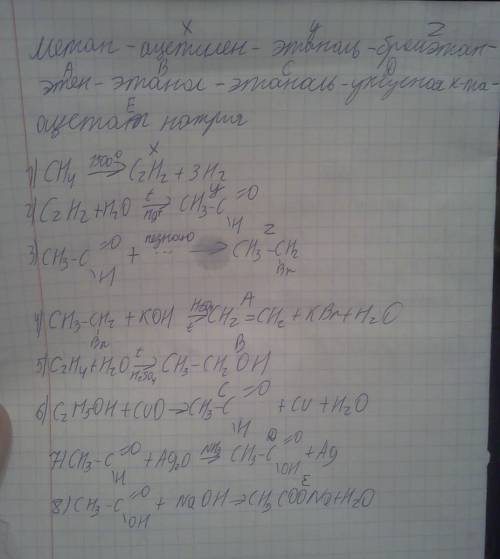 X Y Z
Метан - ацетилен - этаналь - бромэтан -
A B C D
этен - этанол - этаналь - уксусная к-та -
E
ацетат натрия
X
1) CH4 1500° → C2H2 + 3H2
2) C2H2 + H2O t → Hg²⁺ CH3-C Y =O
\H
3) CH3-C =O + незнаю ... → CH3 - CH2 Z
\H Br
4) CH3-CH2 + KOH H2O → t CH2 = CH2 A + KBr + H2O
Br
5) C2H4 + H2O t → H2SO4 CH3 - CH2 OH B
6) C2H5OH + CuO → CH3-C C =O + Cu + H2O
\H
7) CH3-C =O + Ag2O NH3 → CH3-C D =O + Ag
\H \OH
8) CH3-C =O + NaOH → CH3COONa E + H2O
\OH